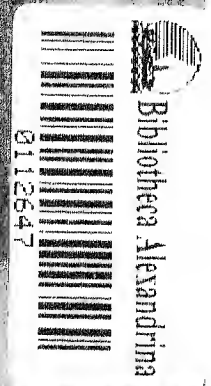 Bibliotheca Alexandrina
0112647